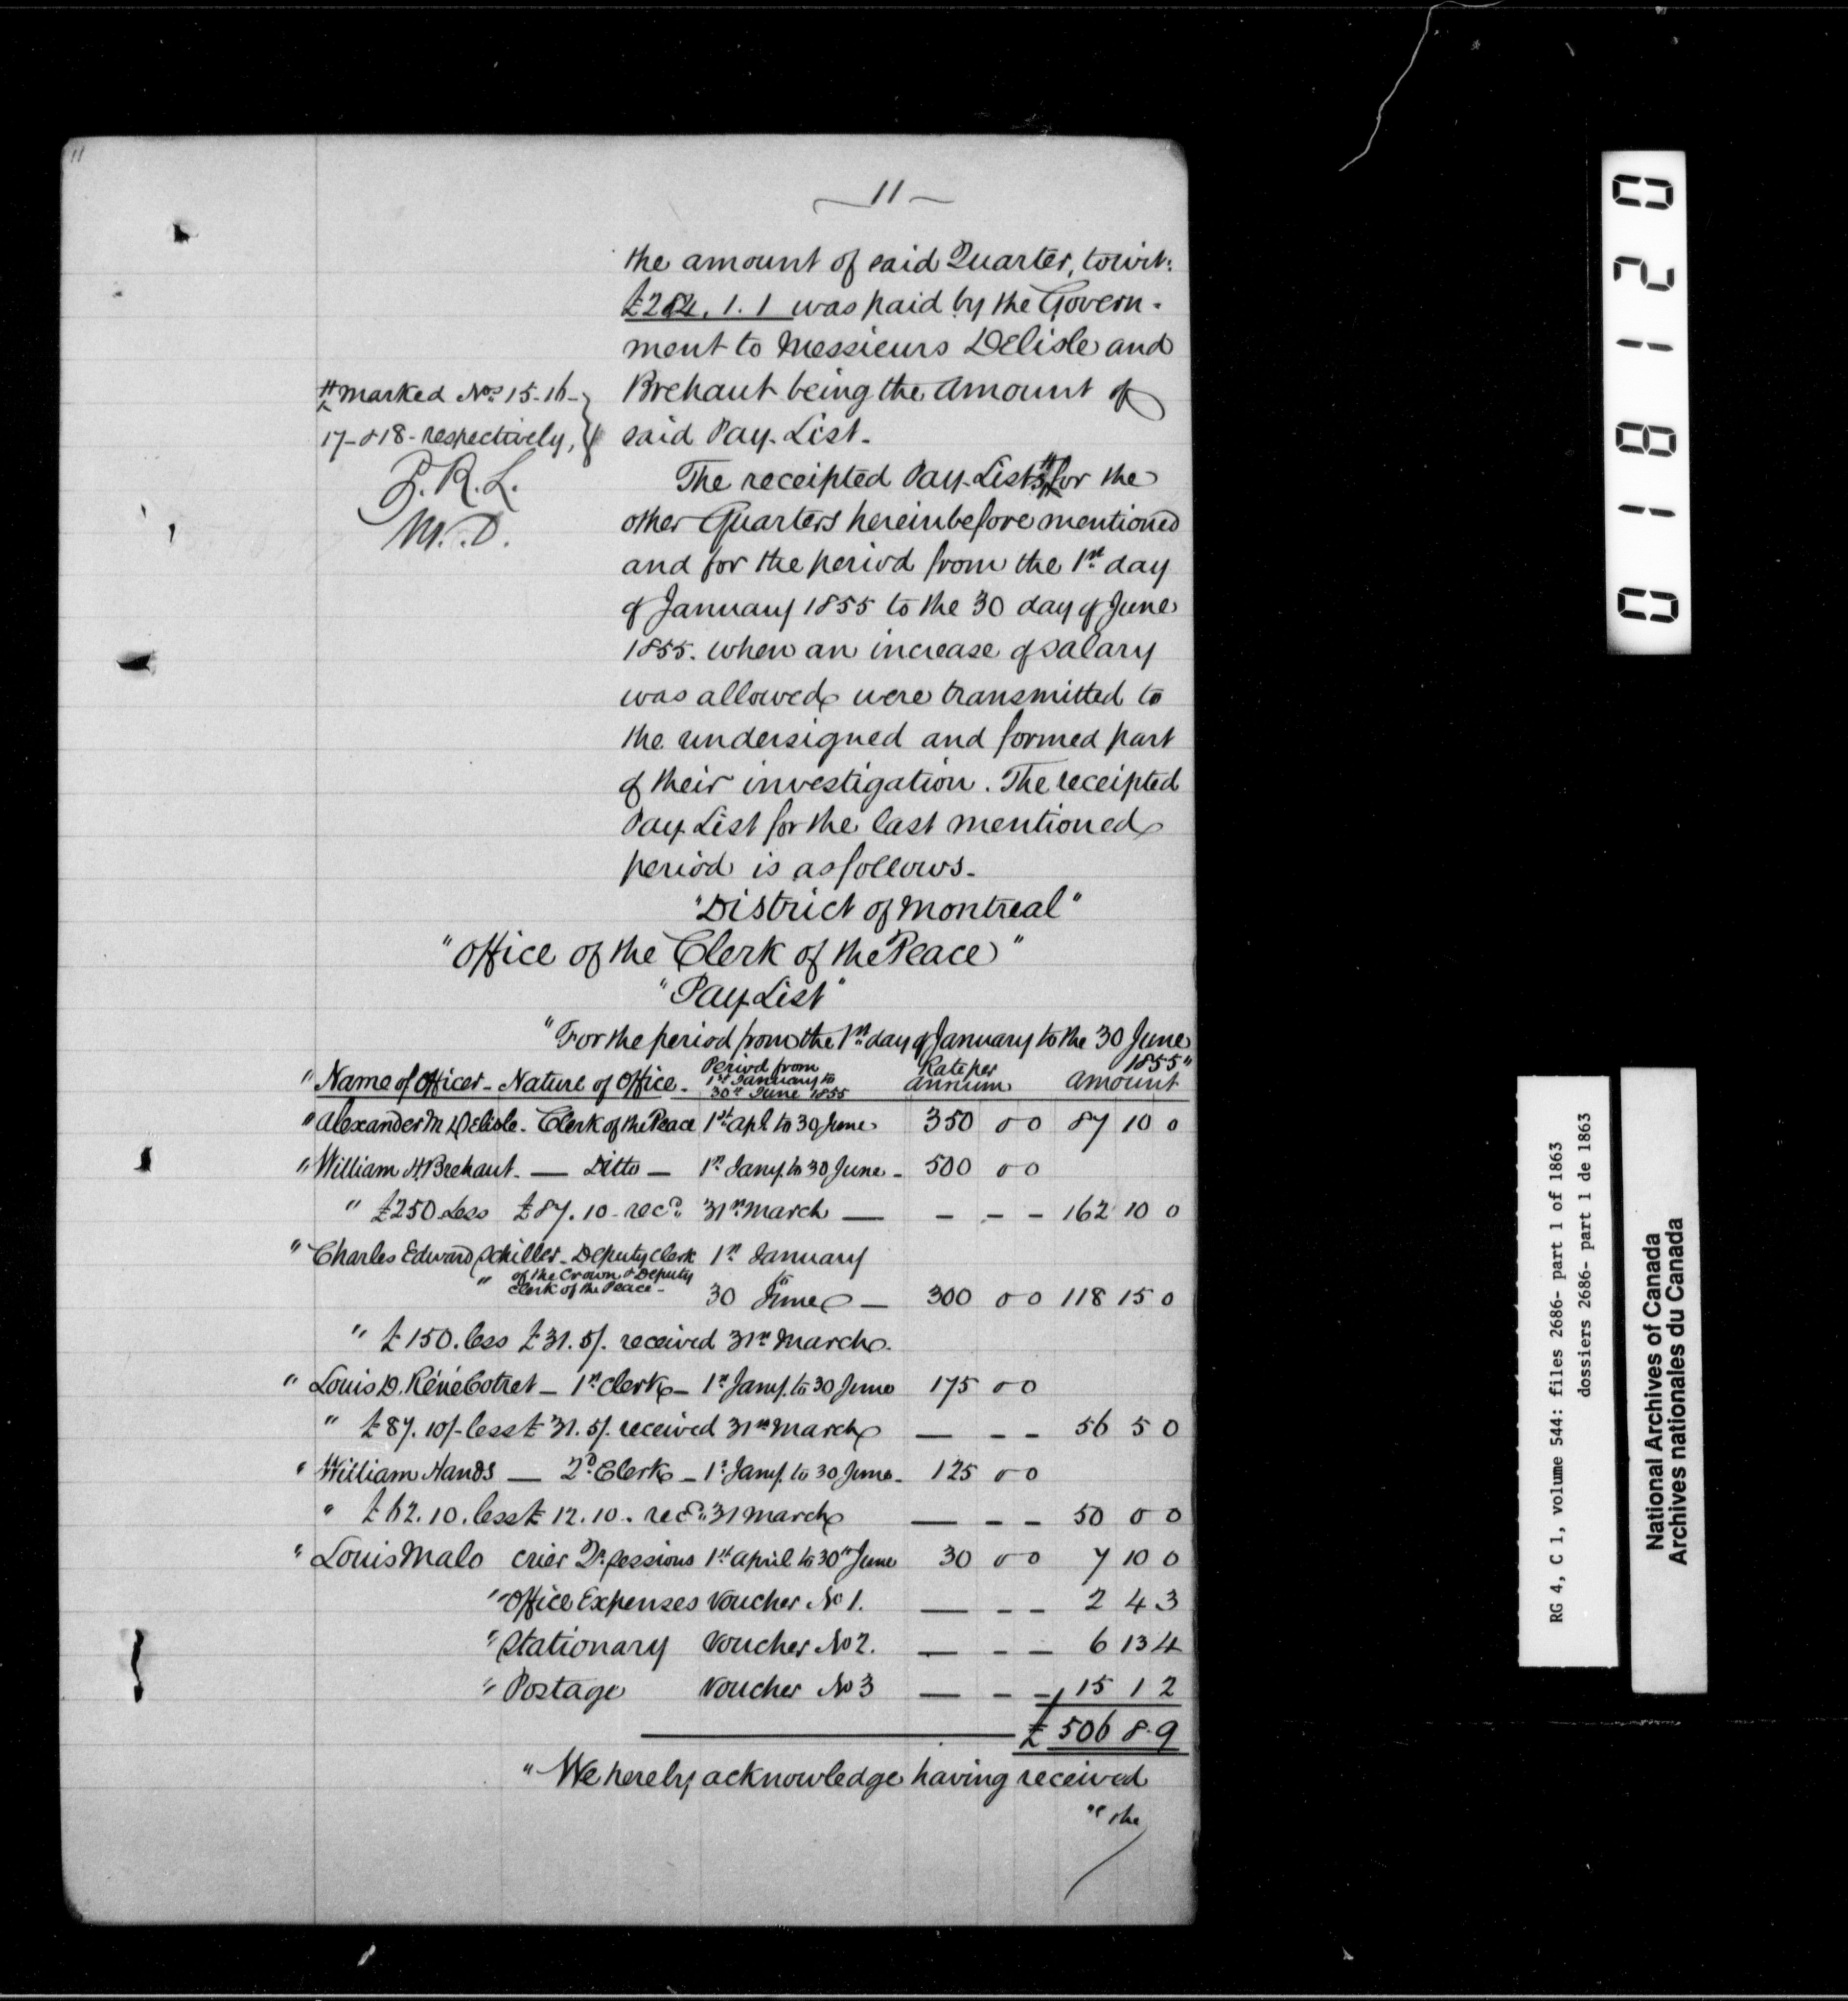 11
— 11 —
the amount of said Quarter, towit:
£284. 1. 1 was paid by the Govern-
ment to Messieurs Delisle and
Brehaut being the Amount of
said Pay-List.
# marked Nos 15-16-
17-& 18- respectively,
P.R.L.
M.D.
The receipted Pay-Lists # for the
other Quarters hereinbefore mentioned
and for the period from the 1st day
of January 1855 to the 30 day of June
1855. when an increase of salary
was allowed were transmitted to
the undersigned and formed part
of their investigation. The receipted
Pay List for the last mentioned
period is as follows.
"District of Montreal"
"Office of the Clerk of the Peace"
"Pay List"
"For the period from the 1st day of January to the 30 June
1855"
"Name of Officer - Nature of Office - Period from 1st January to 30th June 1855 Rate per annum amount
"Alexander M Delisle - Clerk of the Peace 1st Apl to 30 June 350 0 0 87 10 0
"William H. Brehaut - — Ditto — 1st Jany. to 30 June - 500 0 0
" £250 Less £87. 10 - recd. 31st March — - - - 162 10 0
"Charles Edward Schiller - Deputy Clerk 1st January
" of the Crown & Deputy Clerk of the Peace - to 30 June — 300 0 0 118 15 0
" £150. less £31. 5/. received 31st March.
"Louis D. Réné Cotret - 1st Clerk - 1st Jany. to 30 June 175 0 0
" £87. 10/- less £31. 5/. received 31st March — - - 56 5 0
"William Hands — 2d Clerk - 1st Jany. to 30 June - 125 0 0
" £62. 10. less £12. 10. recd. 31 March — - - 50 0 0
"Louis Malo crier Qr. sessions 1st April to 30th June 30 0 0 7 10 0
"Office Expenses Voucher No 1. — - - 2 4 3
"Stationary Voucher No 2. — - - 6 13 4
"Postage Voucher No 3 — - - 15 1 2
£ 506 8. 9
"We hereby acknowledge having received
"the
018120
RG 4, C 1, volume 544: files 2686- part 1 of 1863
dossiers 2686- part 1 de 1863
National Archives of Canada
Archives nationales du Canada